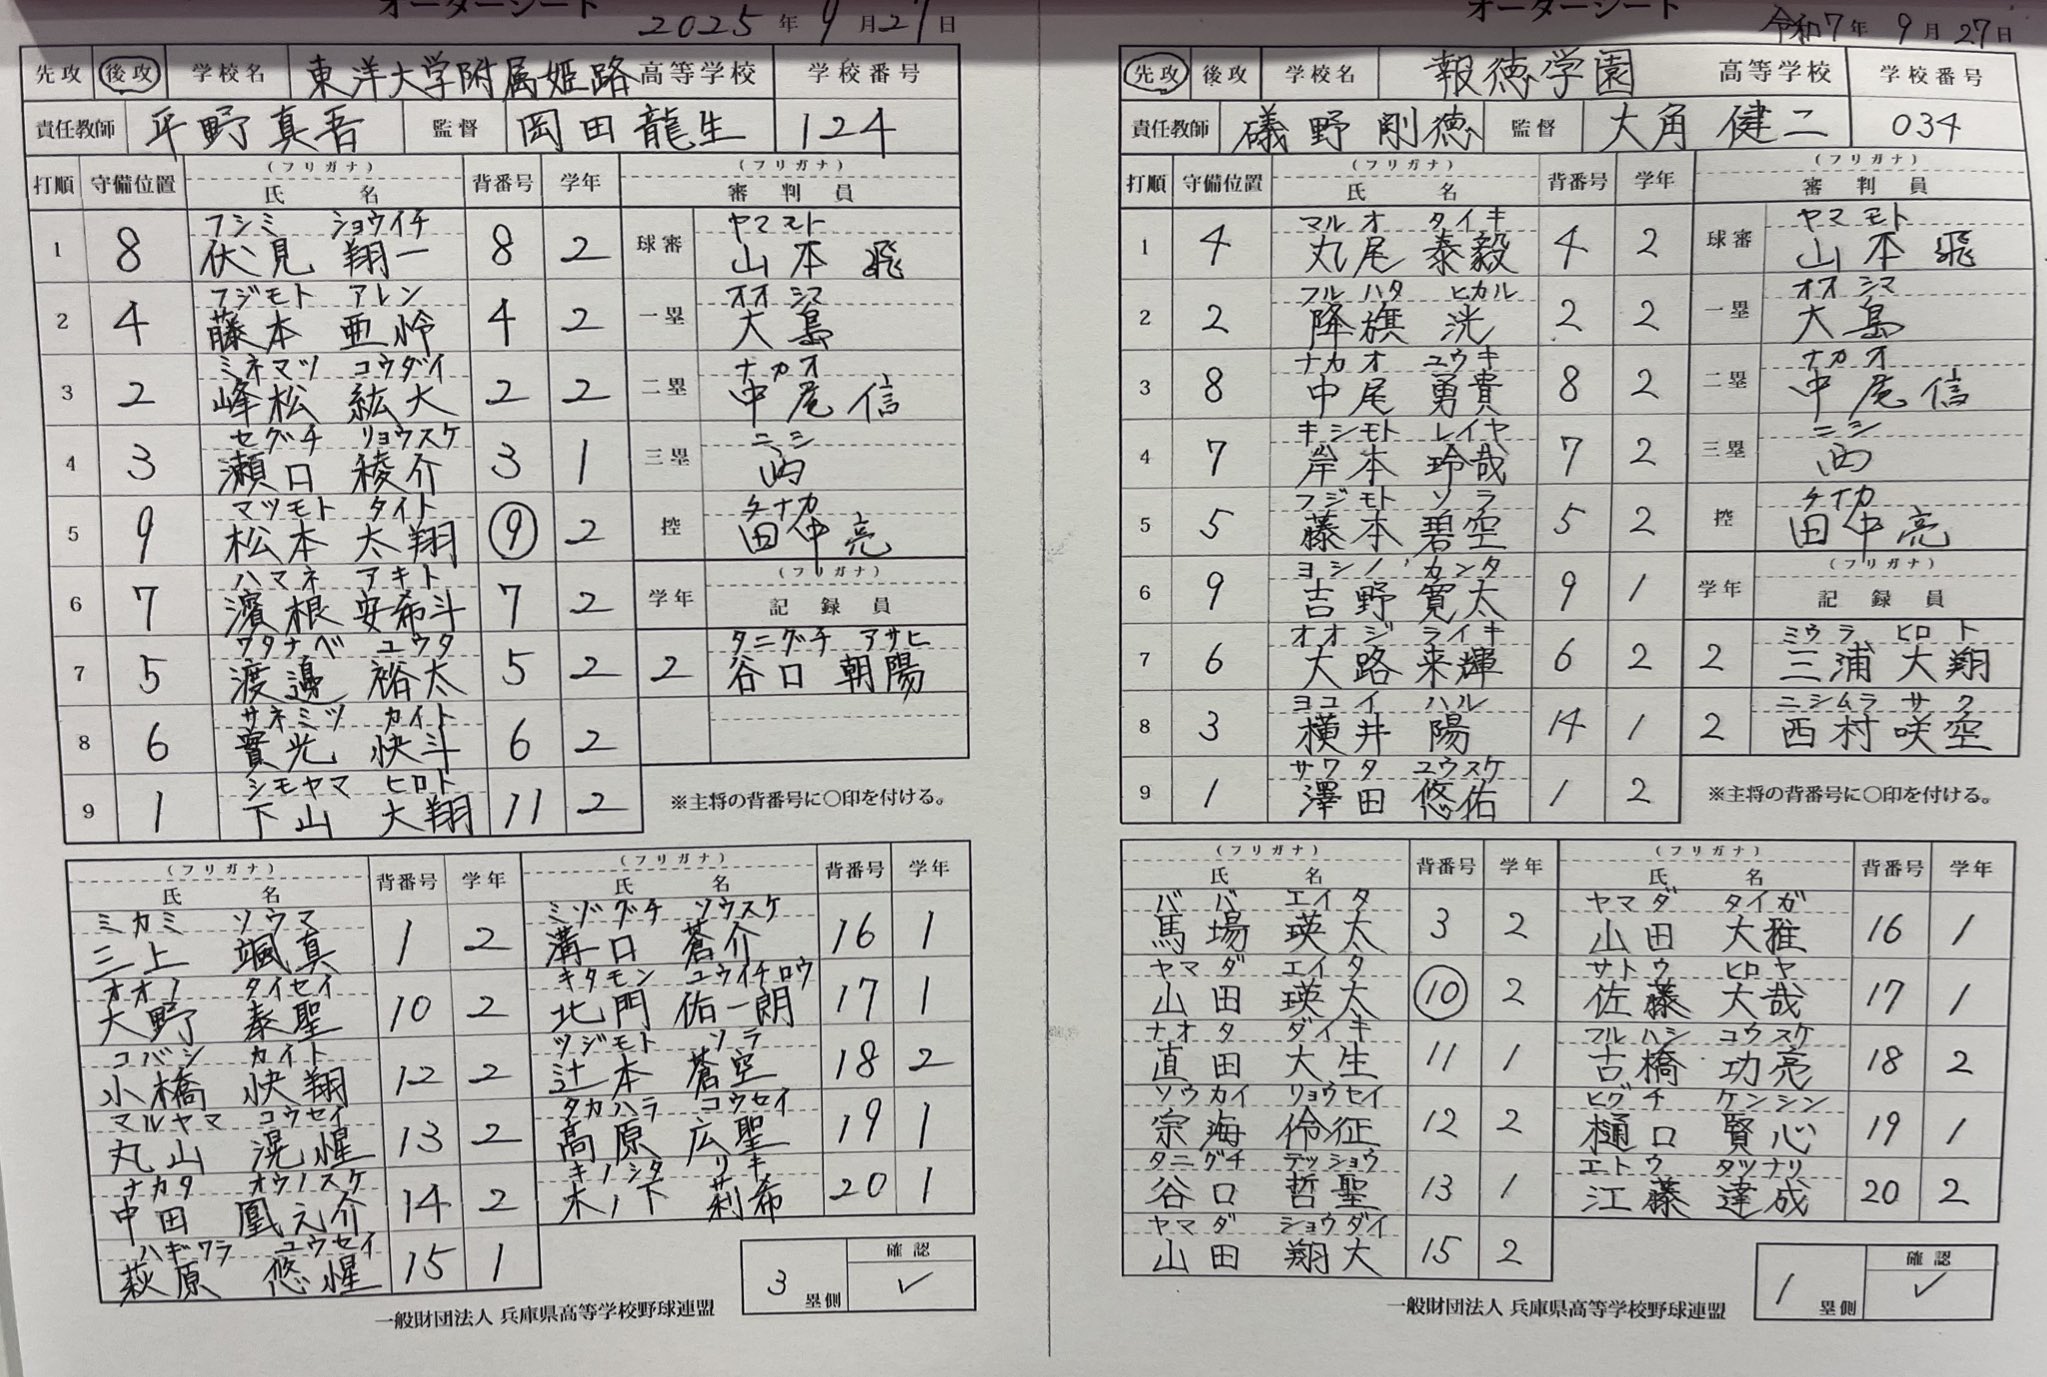 オーダーシート
2025年9月27日
先攻 後攻 学校名 東洋大学附属姫路 高等学校 学校番号
責任教師 平野真吾 監督 岡田龍生 124
打順 守備位置 (フリガナ) 氏名 背番号 学年 (フリガナ) 審判員
フシミ ショウイチ ヤマモト
1 8 伏見 翔一 8 2 球審 山本 飛
フジモト アレン オオシマ
2 4 藤本 亜怜 4 2 一塁 大島
ミネマツ コウダイ ナカオ
3 2 峰松 紘大 2 2 二塁 中尾 信
セグチ リョウスケ ニシ
4 3 瀬口 稜介 3 1 三塁 西
マツモト タイト タナカ
5 9 松本 太翔 9 2 控 田中 亮
ハマネ アキト (フリガナ)
6 7 濱根 安希斗 7 2 学年 記録員
ワタナベ ユウタ タニグチ アサヒ
7 5 渡邊 裕太 5 2 2 谷口 朝陽
サネミツ カイト
8 6 實光 快斗 6 2
シモヤマ ヒロト
9 1 下山 大翔 11 2 ※主将の背番号に〇印を付ける。
(フリガナ) 氏名 背番号 学年 (フリガナ) 氏名 背番号 学年
ミカミ ソウマ ミゾグチ ソウスケ
三上 颯真 1 2 溝口 蒼介 16 1
オオノ タイセイ キタモン ユウイチロウ
大野 泰聖 10 2 北門 佑一朗 17 1
コバシ カイト ツジモト ソラ
小橋 快翔 12 2 辻本 蒼空 18 2
マルヤマ コウセイ タカハラ コウセイ
丸山 滉惺 13 2 髙原 広聖 19 1
ナカタ オウノスケ キノシタ リキ
中田 凰元介 14 2 木ノ下 莉希 20 1
ハギワラ ユウセイ
萩原 悠惺 15 1
3 塁側 確認 ✓
一般財団法人 兵庫県高等学校野球連盟
オーダーシート
令和7年 9月27日
先攻 後攻 学校名 報徳学園 高等学校 学校番号
責任教師 礒野剛徳 監督 大角健二 034
打順 守備位置 (フリガナ) 氏名 背番号 学年 (フリガナ) 審判員
マルオ タイキ ヤマモト
1 4 丸尾 泰毅 4 2 球審 山本 飛
フルハタ ヒカル オオシマ
2 2 降旗 洸 2 2 一塁 大島
ナカオ ユウキ ナカオ
3 8 中尾 勇貴 8 2 二塁 中尾 信
キシモト レイヤ ニシ
4 7 岸本 玲哉 7 2 三塁 西
フジモト ソラ タナカ
5 5 藤本 碧空 5 2 控 田中 亮
ヨシノ カンタ (フリガナ)
6 9 吉野 寛太 9 1 学年 記録員
オオジ ライキ ミウラ ヒロト
7 6 大路 来輝 6 2 2 三浦 大翔
ヨコイ ハル ニシムラ サク
8 3 横井 陽 14 1 2 西村 咲空
サワタ ユウスケ
9 1 澤田 悠佑 1 2 ※主将の背番号に〇印を付ける。
(フリガナ) 氏名 背番号 学年 (フリガナ) 氏名 背番号 学年
ババ エイタ ヤマダ タイガ
馬場 瑛太 3 2 山田 大雅 16 1
ヤマダ エイタ サトウ ヒロヤ
山田 瑛太 10 2 佐藤 大哉 17 1
ナオタ ダイキ フルハシ コウスケ
直田 大生 11 1 古橋 功亮 18 2
ソウカイ リョウセイ ヒグチ ケンシン
宗海 伶征 12 2 樋口 賢心 19 1
タニグチ テッショウ エトウ タツナリ
谷口 哲聖 13 1 江藤 達成 20 2
ヤマダ ショウダイ
山田 翔大 15 2
1 塁側 確認 ✓
一般財団法人 兵庫県高等学校野球連盟